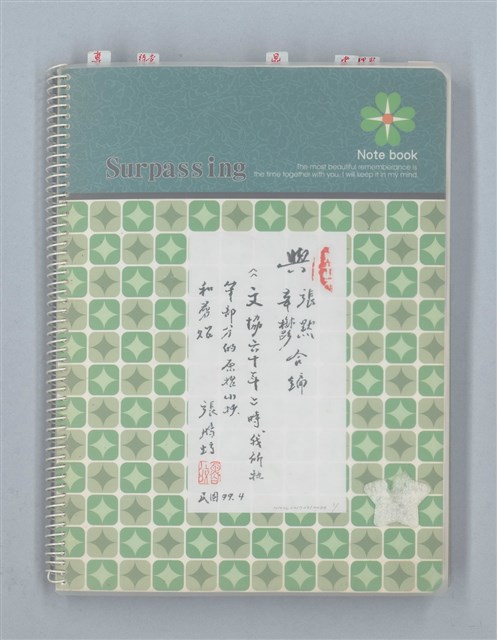 Surpassing
Note book
The most beautiful rememberance is
the time together with you, I will keep it in my mind.
與 張默 合編
辛鬱
《文協六十年》時,我所執
筆部分的原始小抄
和剪報
張騰蛟
民國99.4